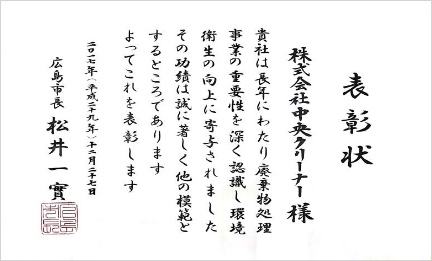 表彰状
株式会社中央クリーナー 様
貴社は長年にわたり廃棄物処理
事業の重要性を深く認識し環境
衛生の向上に寄与されました
その功績は誠に著しく他の模範と
するところであります
よってこれを表彰します
二〇一七年(平成二十九年)十二月二十七日
広島市長 松井一實